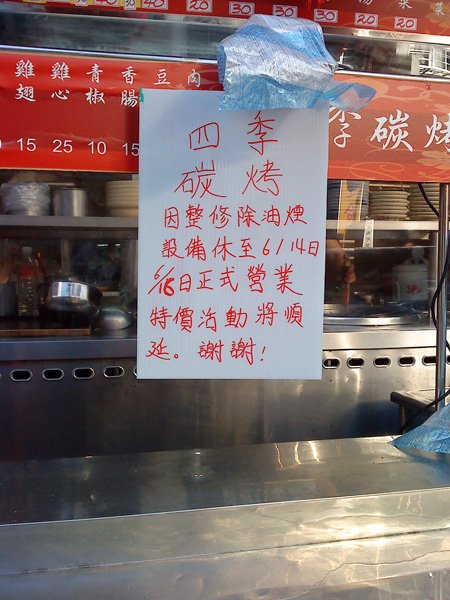 40 40 40 30 30 30 20 20
雞翅 雞心 青椒 香腸 豆 肉
15 25 10 15
季碳烤
四季
碳烤
因整修除油煙
設備休至6/14日
6/15日正式營業
特價活動將順
延。謝謝!